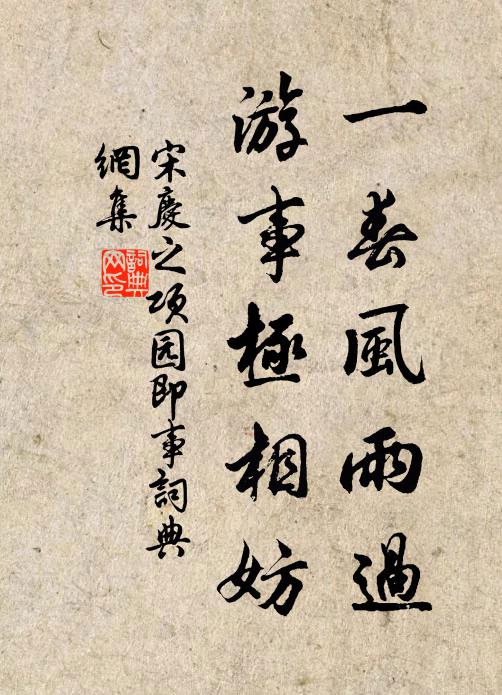 一春風雨過
游事極相妨
宋慶之項园即事詞典
網集
詞典
网印